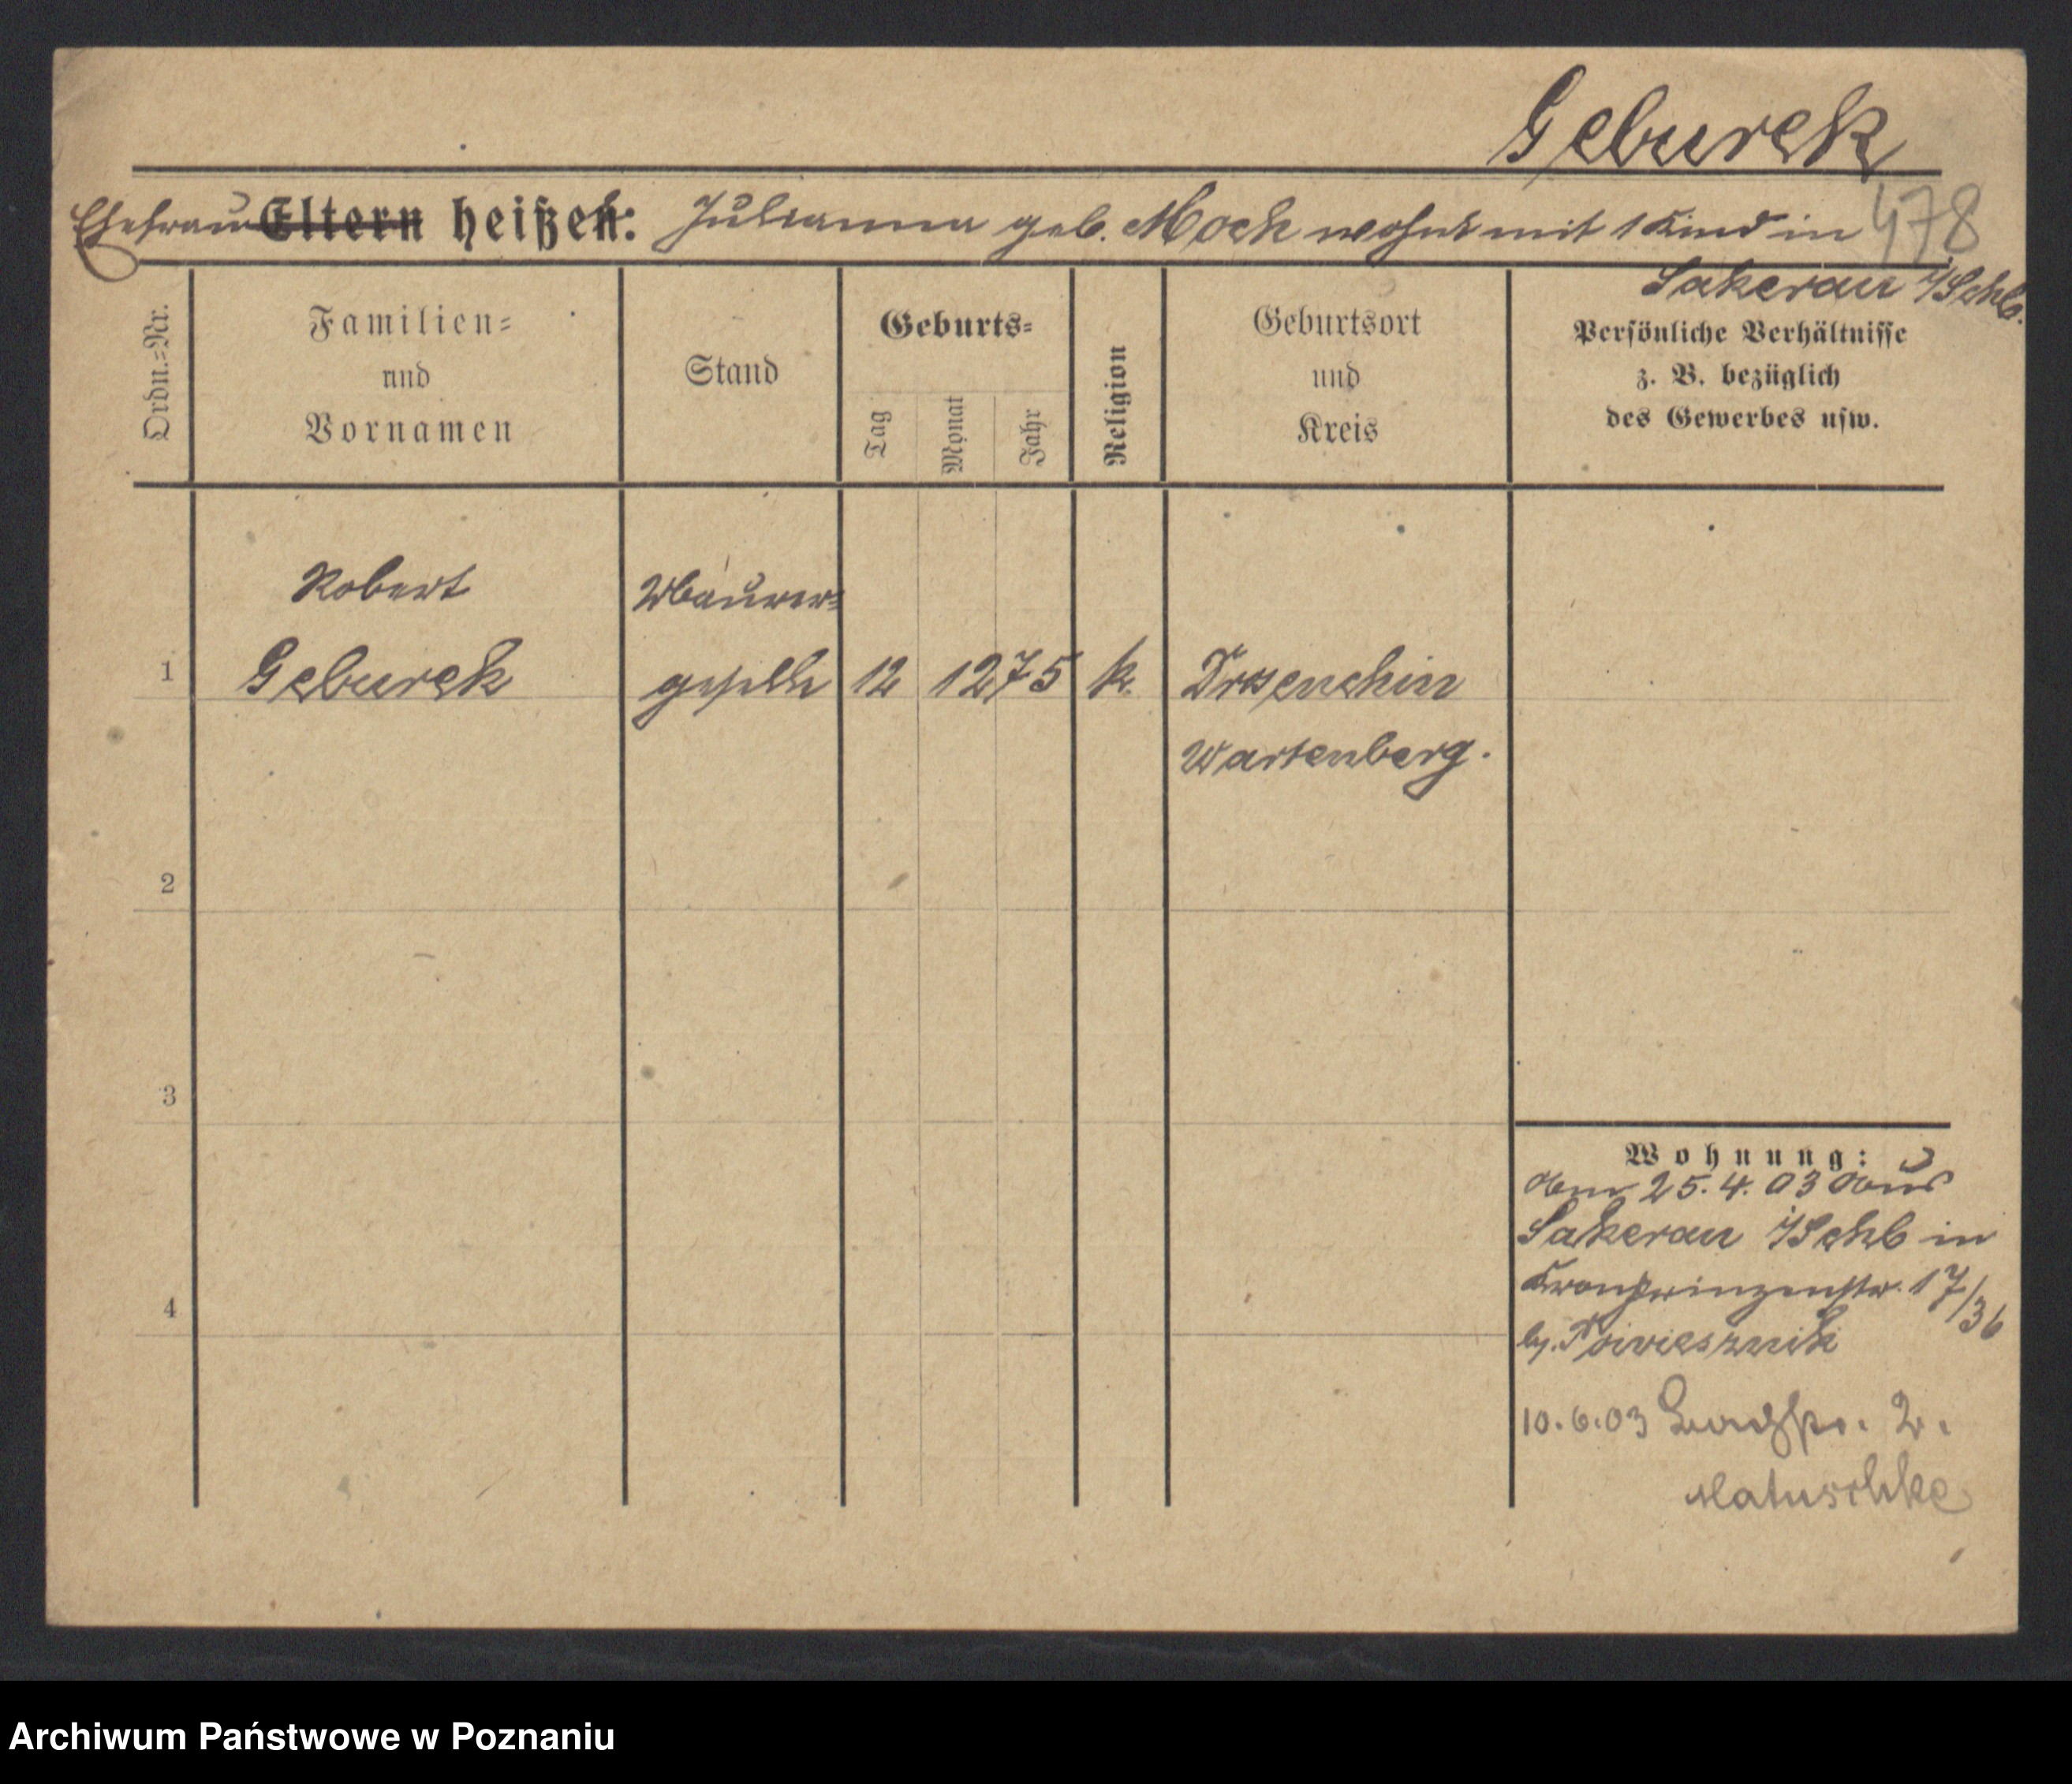 Geburek
478
Ehefrau Eltern heißen: Julianna geb. Mock wohnt mit 1 Kind in
Sakerau i/Schl.
Ordn.=Nr.
Familien=
und
Vornamen
Stand
Geburts=
Tag
Monat
Jahr
Religion
Geburtsort
und
Kreis
Persönliche Verhältnisse
z. B. bezüglich
des Gewerbes usw.
Robert Maurer=
1 Geburek geselle 12 12 75 k.
Wartenberg.
2
3
4
Wohnung:
Am 25.4.03 aus
Sakerau i/Schl in
Kronprinzenstr. 17/36
10.6.03 2.
Matuschke
Archiwum Państwowe w Poznaniu